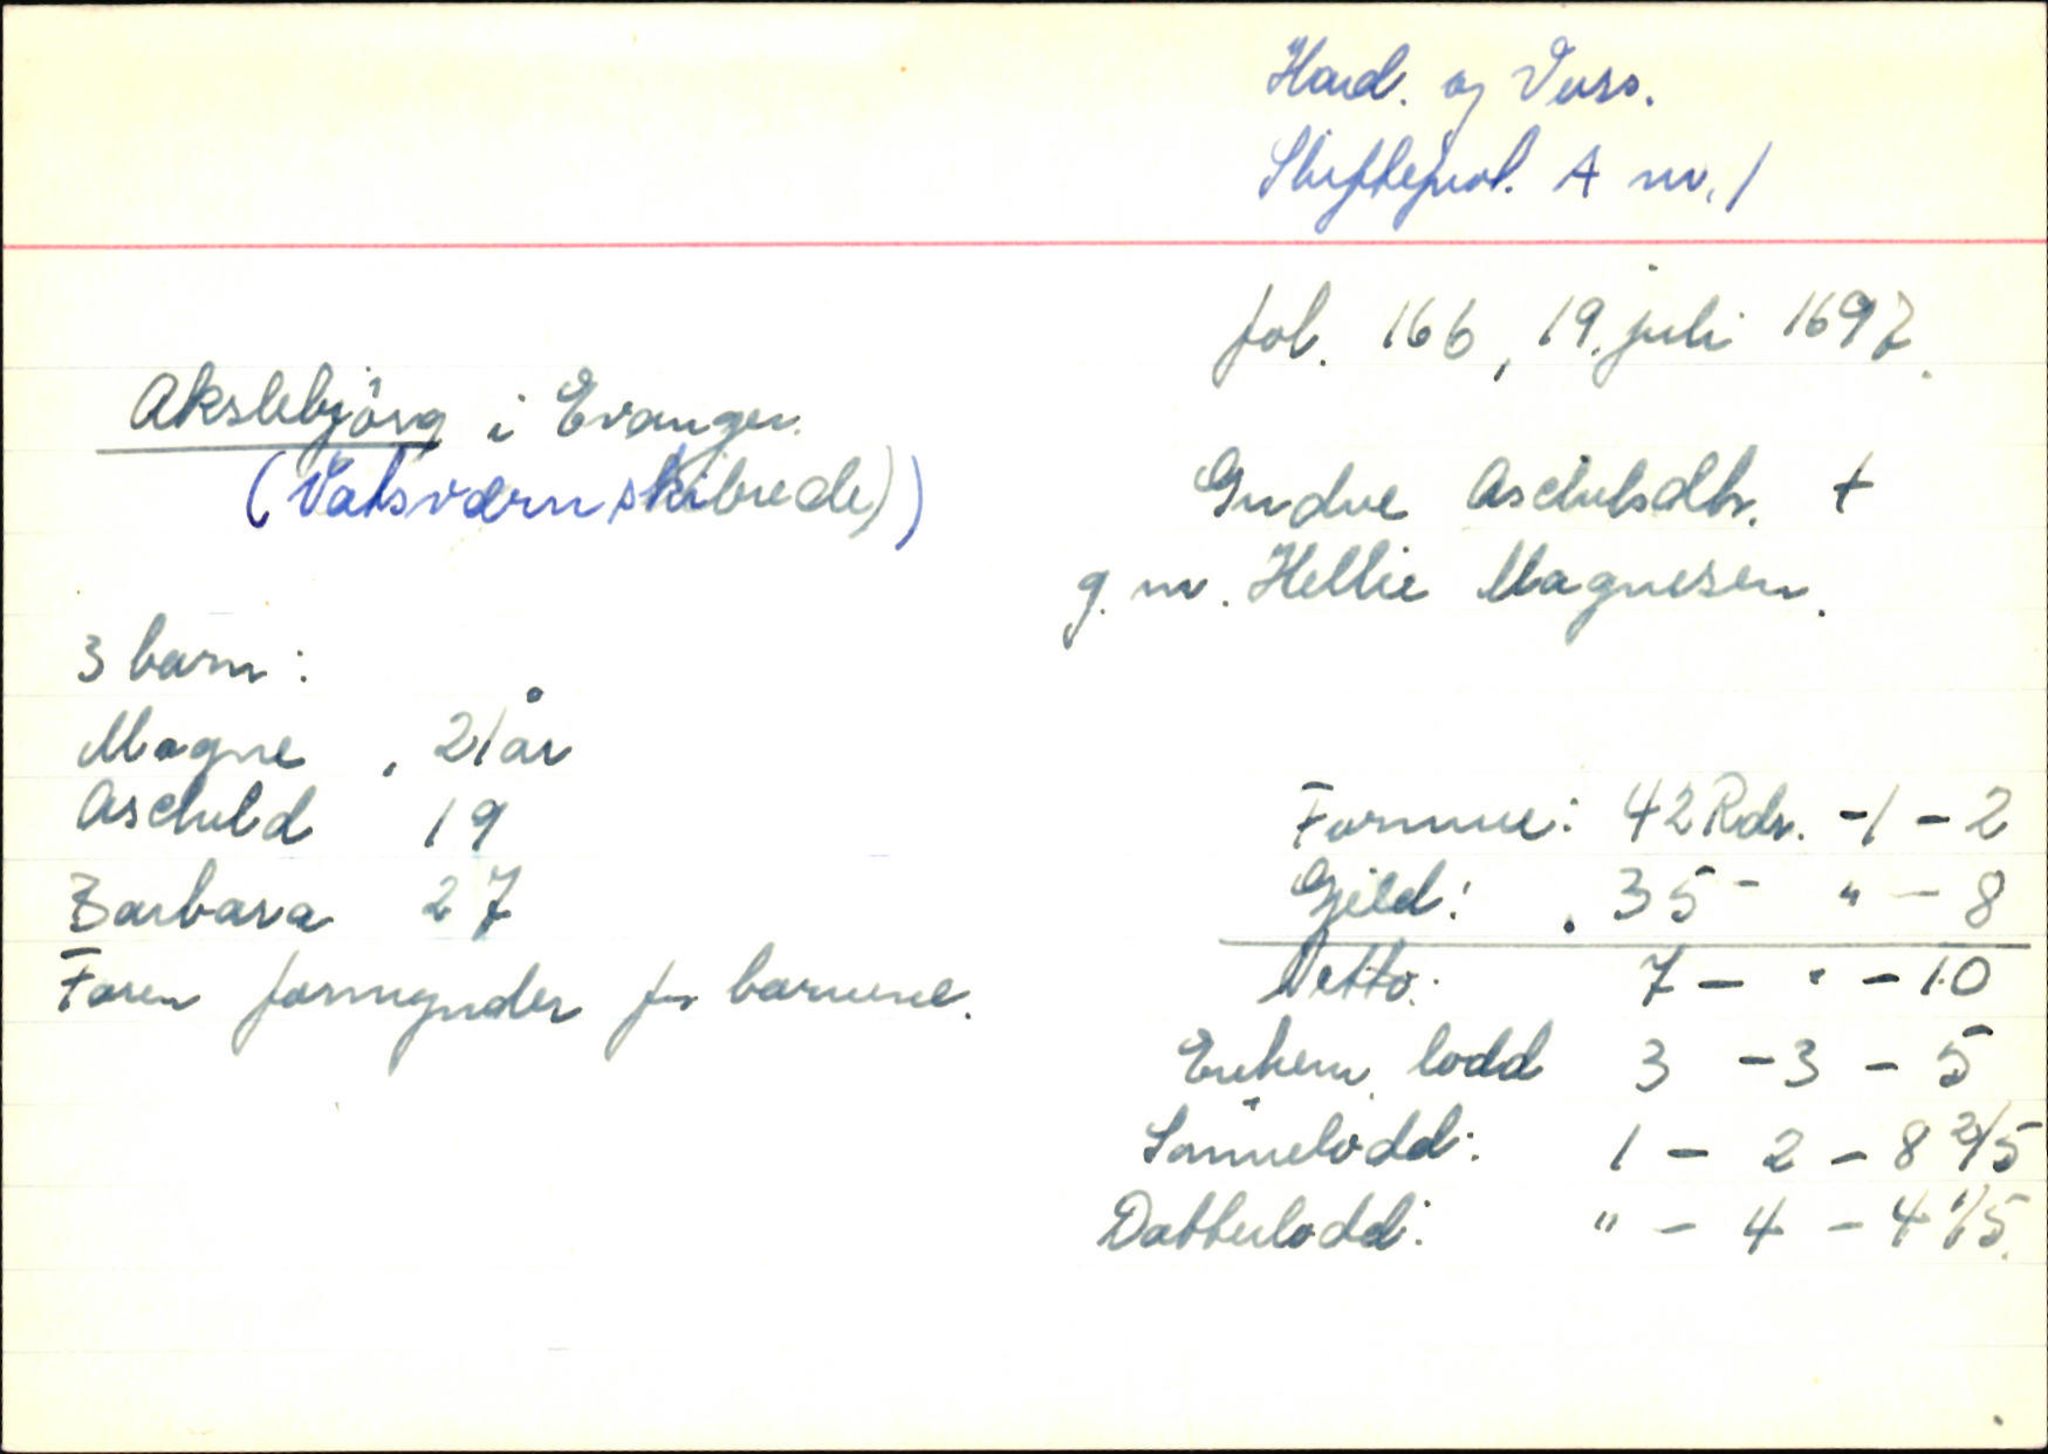 Hard. og Voss.
Skifteprot. A nr. 1
fol. 166, 19. juli 1697.
Akslebjörg i Evanger.
(Vatsværn skibrede))
Gudve Aschilsdtr. +
g. m. Hellie Magnesen.
3 barn:
Magne, 21 år
Aschild 19
Barbara 27
Faren formynder for barnene.
Formue: 42 Rdr. - 1 - 2
Gjeld: 35 - " - 8
Netto: 7 - " - 10
Enkem. lodd 3 - 3 - 5
Sönnelodd: 1 - 2 - 8 2/5
Datterlodd: " - 4 - 4 1/5.